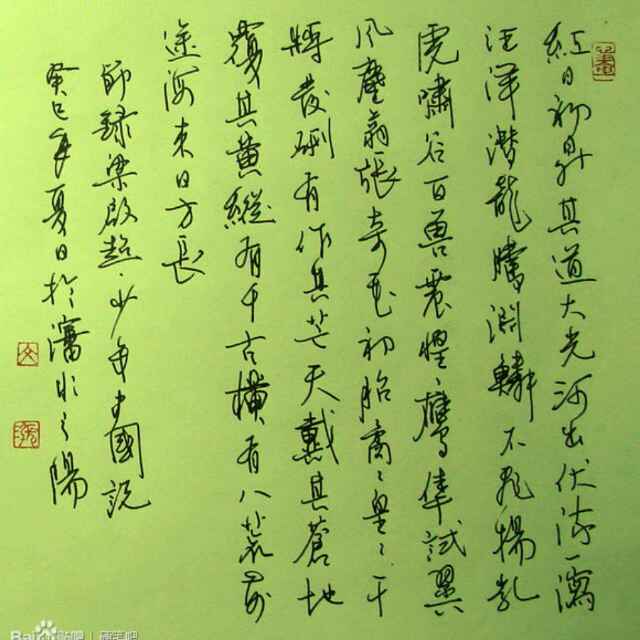 紅日初昇其道大光河出伏流一瀉
汪洋潛龍騰淵鱗爪飛揚乳
虎嘯谷百兽震惶鷹隼試翼
風塵翕張奇花初胎矞〻皇〻干
將發硎有作其芒天戴其蒼地
履其黃縱有千古橫有八荒前
途海来日方長
節録梁啟超·少年中國說
癸巳年夏日於瀋水之陽
Baidu贴吧